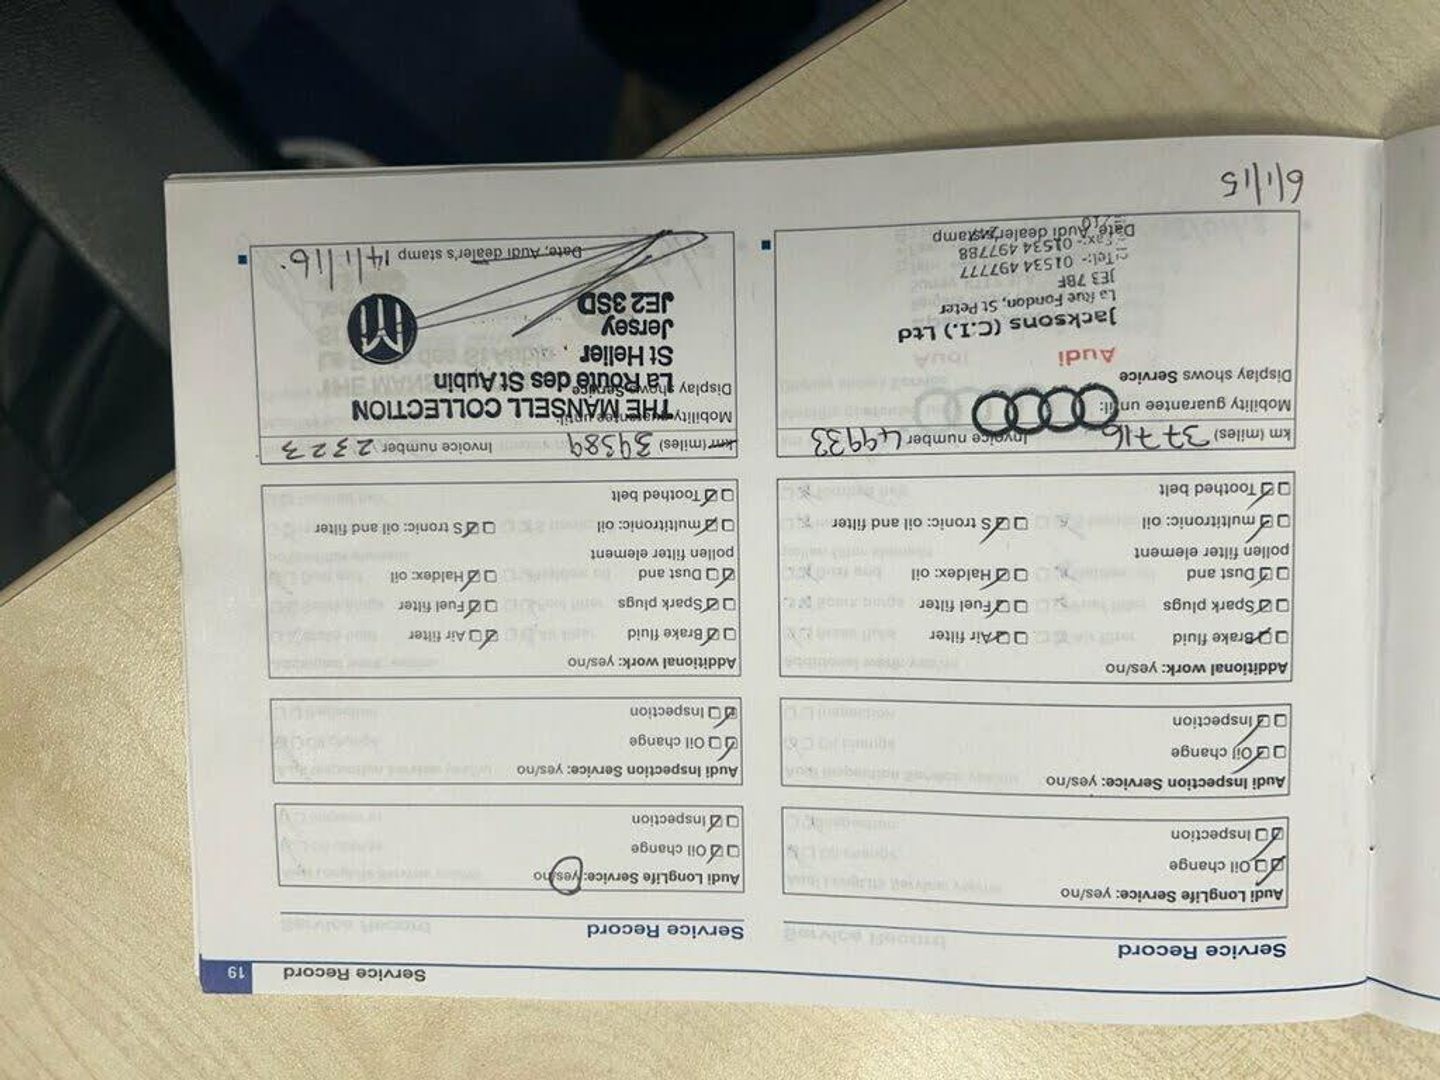 Service Record
19
Service Record
Audi LongLife Service: yes/no
Oil change
Inspection
Audi Inspection Service: yes/no
Oil change
Inspection
Additional work: yes/no
Brake fluid
Air filter
Spark plugs
Fuel filter
Dust and
pollen filter element
Haldex: oil
multitronic: oil
S tronic: oil and filter
Toothed belt
km (miles) 37716
Invoice number 49933
Mobility guarantee until:
Display shows Service
Audi
Jacksons (C.I.) Ltd
La Rue Fondon, St Peter
JE3 7BF
Tel:- 01534 497777
Fax:- 01534 497788
Date, Audi dealer's stamp
6/1/15
Service Record
Audi LongLife Service: yes/no
Oil change
Inspection
Audi Inspection Service: yes/no
Oil change
Inspection
Additional work: yes/no
Brake fluid
Air filter
Spark plugs
Fuel filter
Dust and
pollen filter element
Haldex: oil
multitronic: oil
S tronic: oil and filter
Toothed belt
km (miles) 39389
Invoice number 2323
Mobility guarantee until:
THE MANSELL COLLECTION
Display shows Service
La Route des St Aubin
St Helier
Jersey
JE2 3SD
M
Date, Audi dealer's stamp 14/1/16.